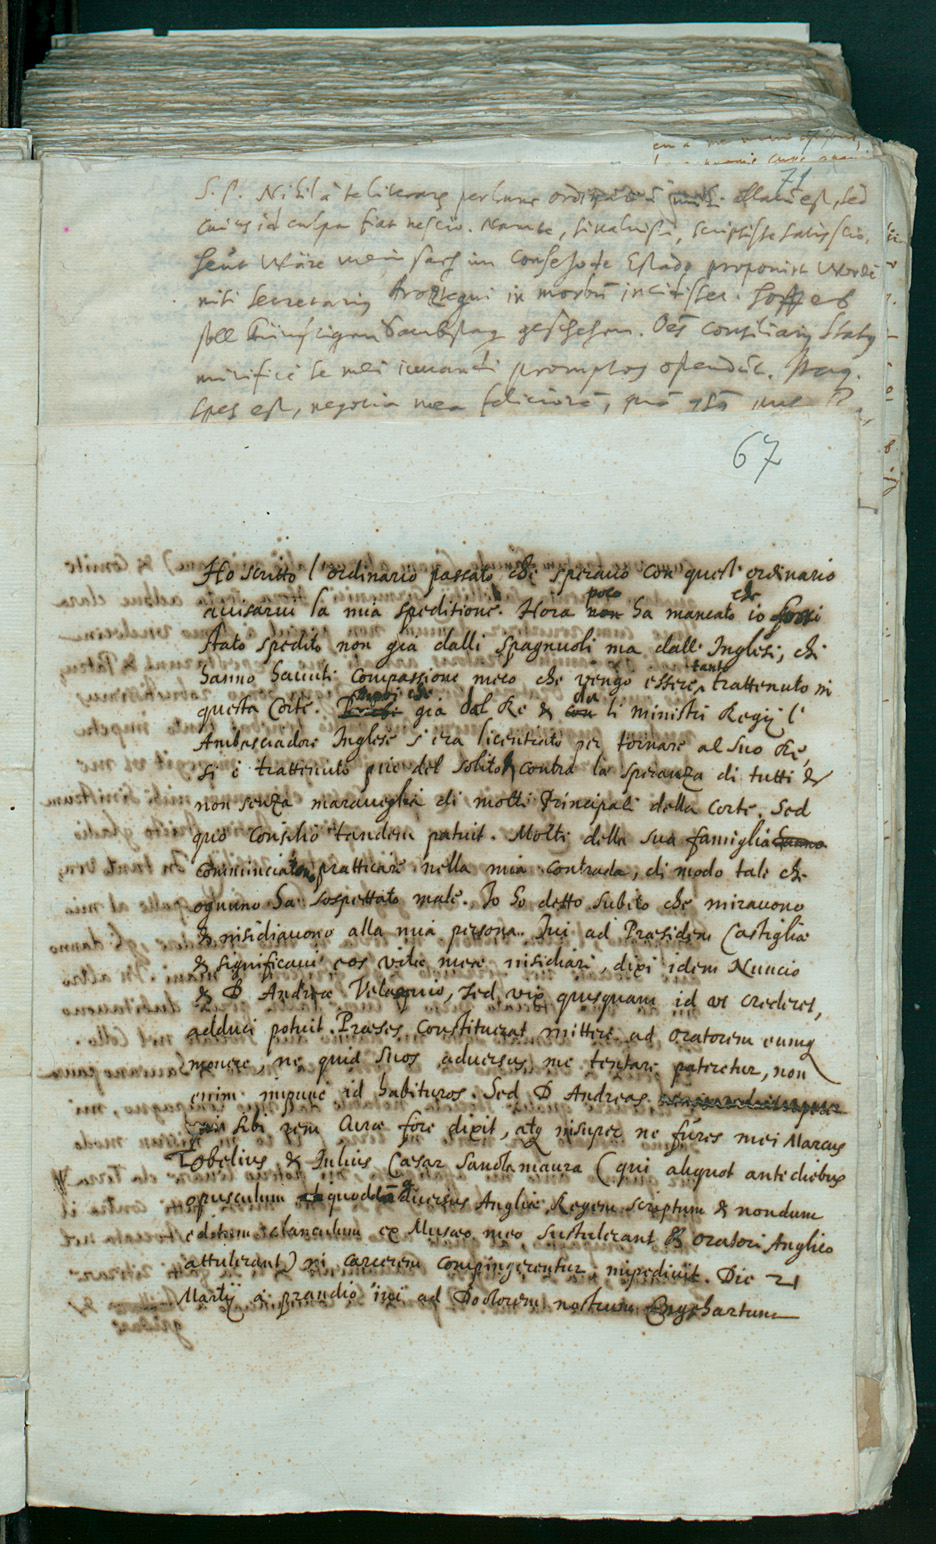 71
S. P. Nihil à te literarum per hunc ordinarium allatum est, sed
cuius id culpa fiat nescio. Nam te, si valuisti, scripsisse satis scio.
heut wäre mein sach im Consejo de Estado proponirt worden
nisi Secretarius Aroztegui in morbum incidisset. hoff es
soll künftigen Sambstag geschehen. Oes Consiliarij Status
mirificè se mei iuvandi promptos ostendunt. Mag.
spes est, negotia mea feliciora, quam
67
Ho scritto l'ordinario passato che speravo con quest' ordinario
avisarvi la mia speditione. Hora non poco ha mancato che io fossi
stato spedito non gia dalli Spagnuoli ma dall' Inglesi, chi
hanno havuti compassione meco che vengo essere tanto trattenuto in
questa Corte. gia dal Re & con da li ministri Regij l'
Ambasciadore Inglese s'era licentiato per tornare al suo Re,
si è trattenuto piu del solito & contra la speranza di tutti &
non senza maraviglia di molti Principali della Corte. Sed
quo consilio tandem patuit. Molti della sua famiglia hanno
comminciato pratticare nella mia contrada, di modo tale che
ognuno ha sospettato male. Io ho detto subito che miravono
& insidiavono alla mia persona. Ivi ad Praesidem Castiglia
& significavi eos vitae meae insidiari, dixi idem Nuncio
& D Andreae Velasquio, sed vix quisquam id ut crederet,
adduci potuit. Praeses constituerat mittere ad oratorem eumq
monere, ne quid suos adversus me tentare pateretur, non
enim impunè id habituros. Sed D Andreas
sibi rem curae fore dixit, atq insuper ne fures mei Marcus
Tobelius, & Julius Caesar Sanctamaura (qui aliquot ante diebus
opusculum quoddam adversus Angliae Regem scriptum & nondum
editum clanculum ex Musaeo meo sustulerant & oratori Anglico
attulerant) in carcerem compingerentur, impedivit. Die 21
Martij à prandio ivi ad Doctorem nostrum Engelhartum